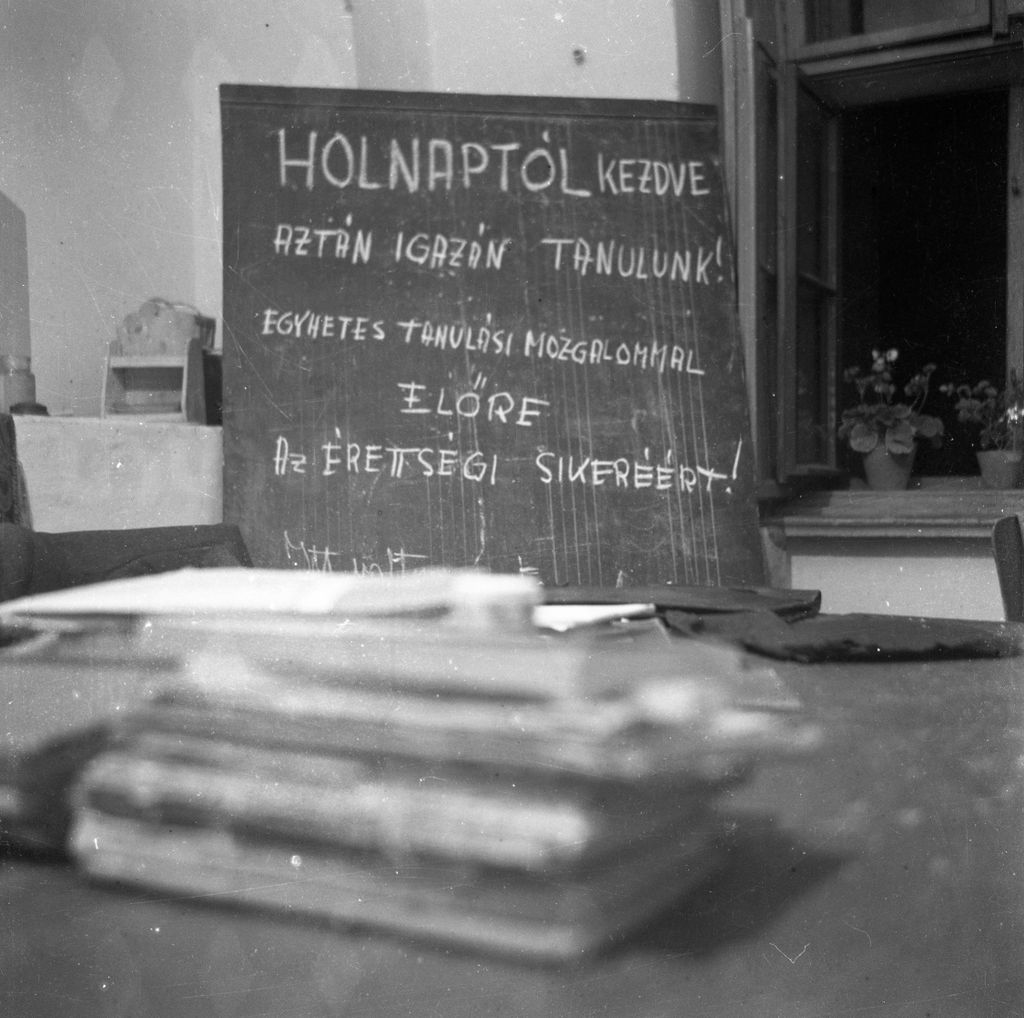 HOLNAPTÓL KEZDVE
AZTÁN IGAZÁN TANULUNK!
EGYHETES TANULÁSI MOZGALOMMAL
ELŐRE
AZ ÉRETTSÉGI SIKERÉÉRT!